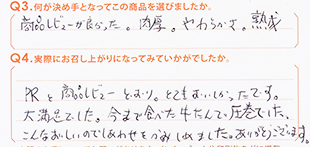 Q3.何が決め手となってこの商品を選びましたか。
商品レビューが良かった。肉厚。やわらかさ。熟成
Q4.実際にお召し上がりになってみていかがでしたか。
PRと商品レビューどおり。とてもおいしかったです。
大満足でした。今まで食べた牛たんで、圧巻でした、
こんなおいしいのでしあわせをかみしめました。ありがとうございます。